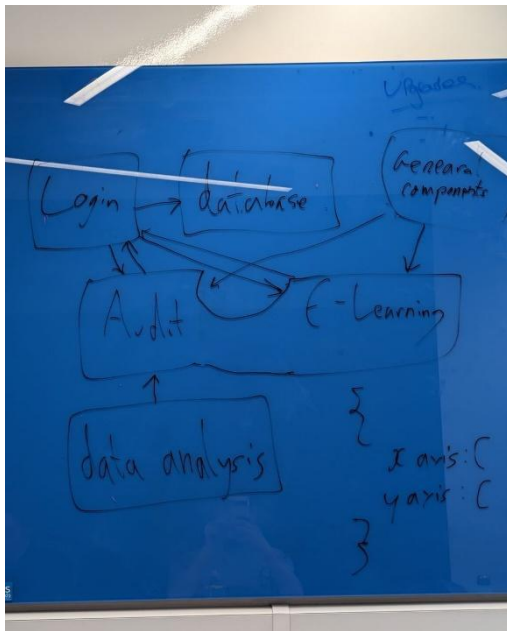 Login
database
General
components
Audit
E-Learning
data analysis
{
x axis: [
y axis: [
}